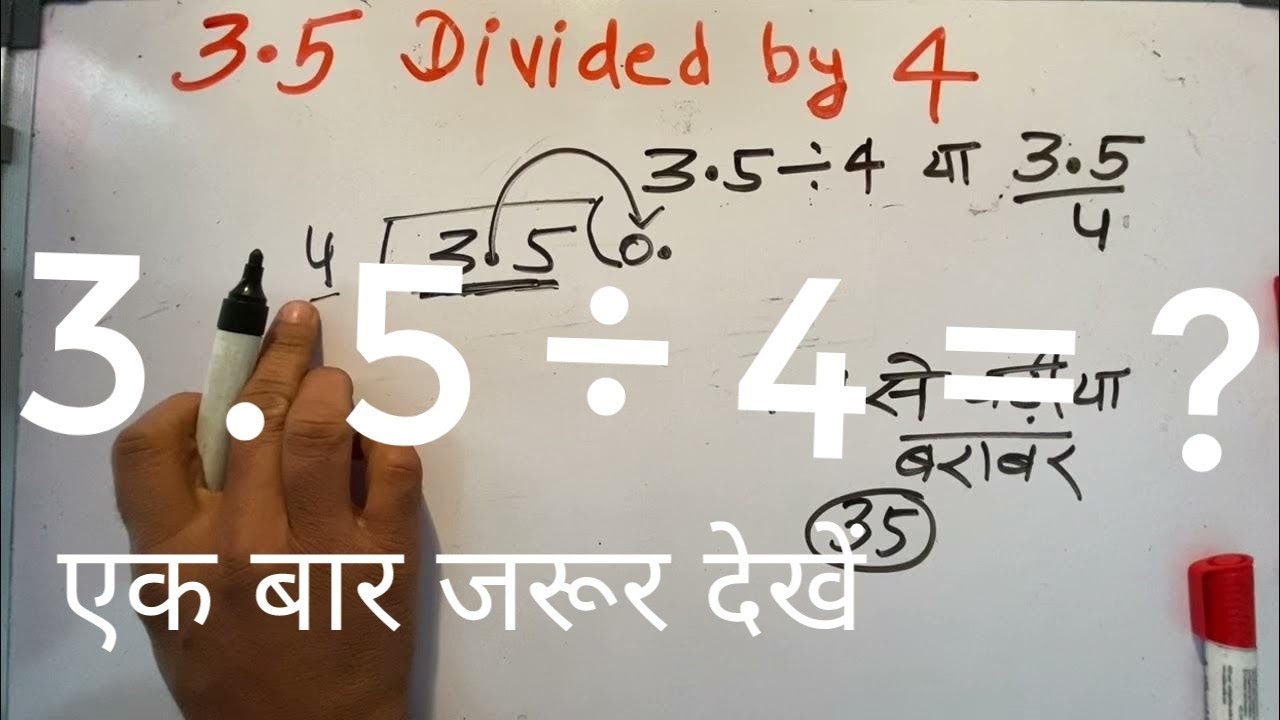 3.5 Divided by 4
3.5÷4 या 3.5/4
4 3.5 0.
3.5÷4=?
से या
बराबर
35
एक बार जरूर देखें